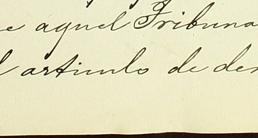 e aquel Tribuna
l artículo de de